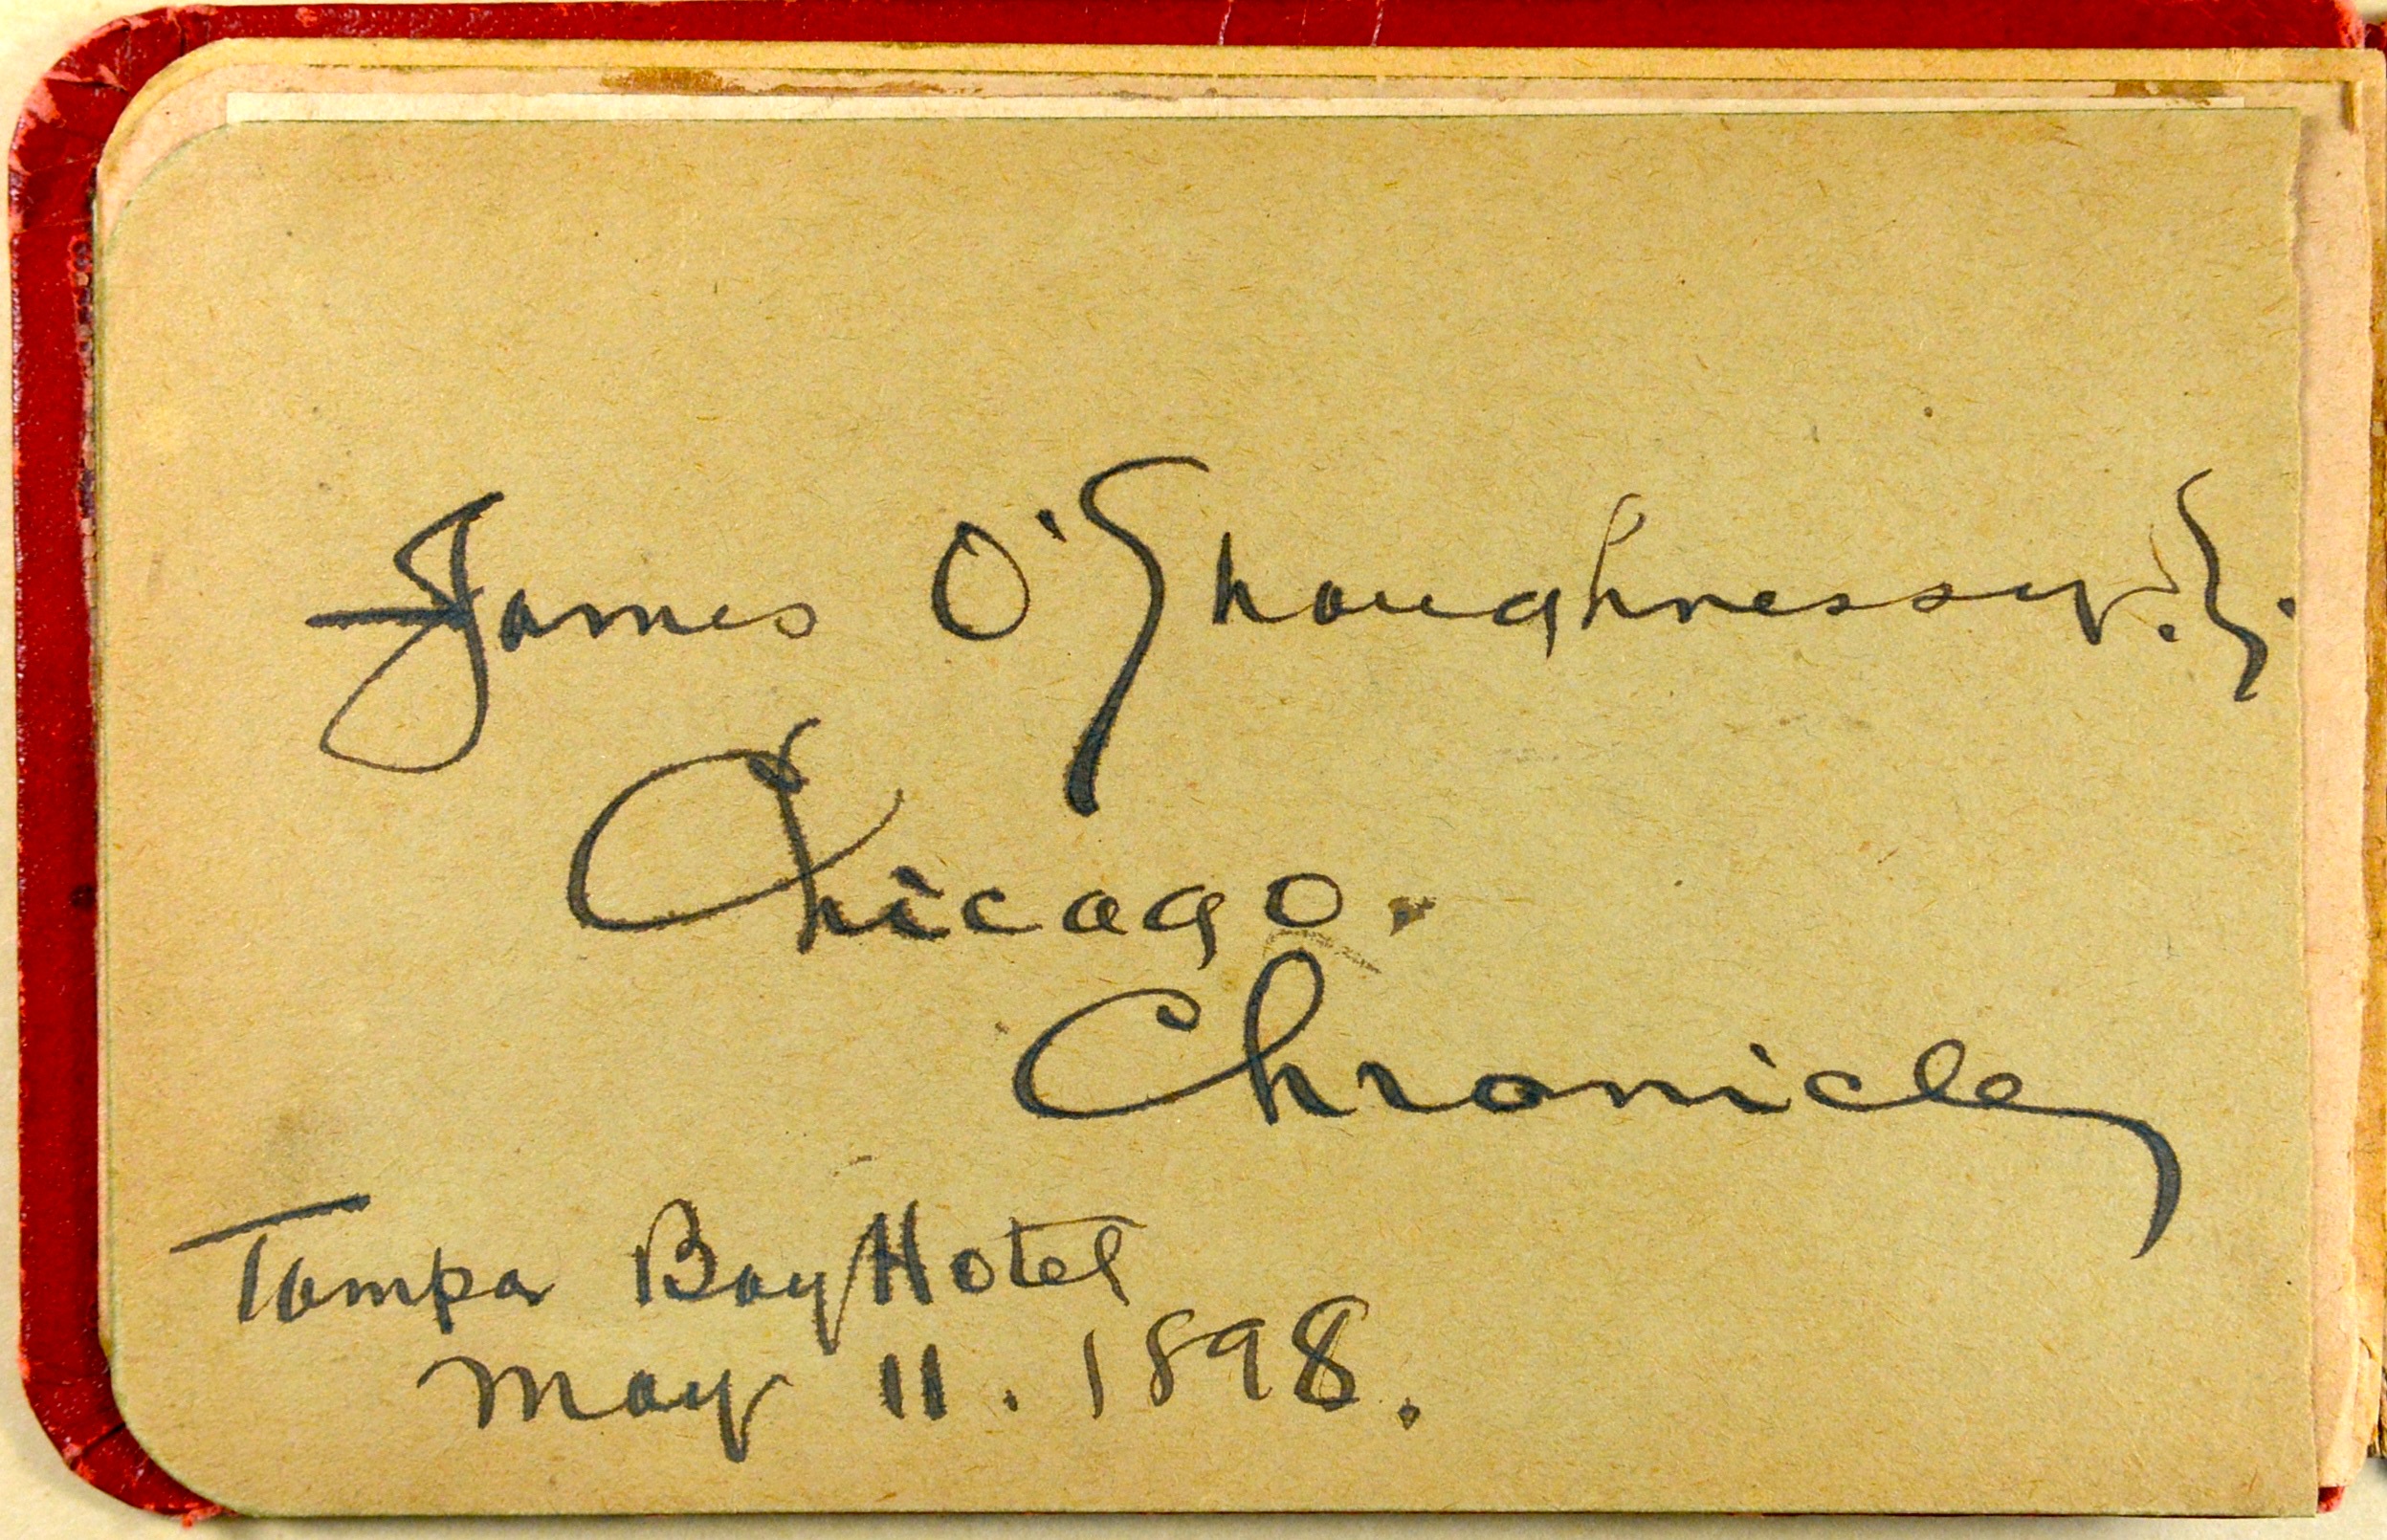 James O'Shaughnessy. Jr.
Chicago.
Chronicle
Tampa Bay Hotel
May 11. 1898.